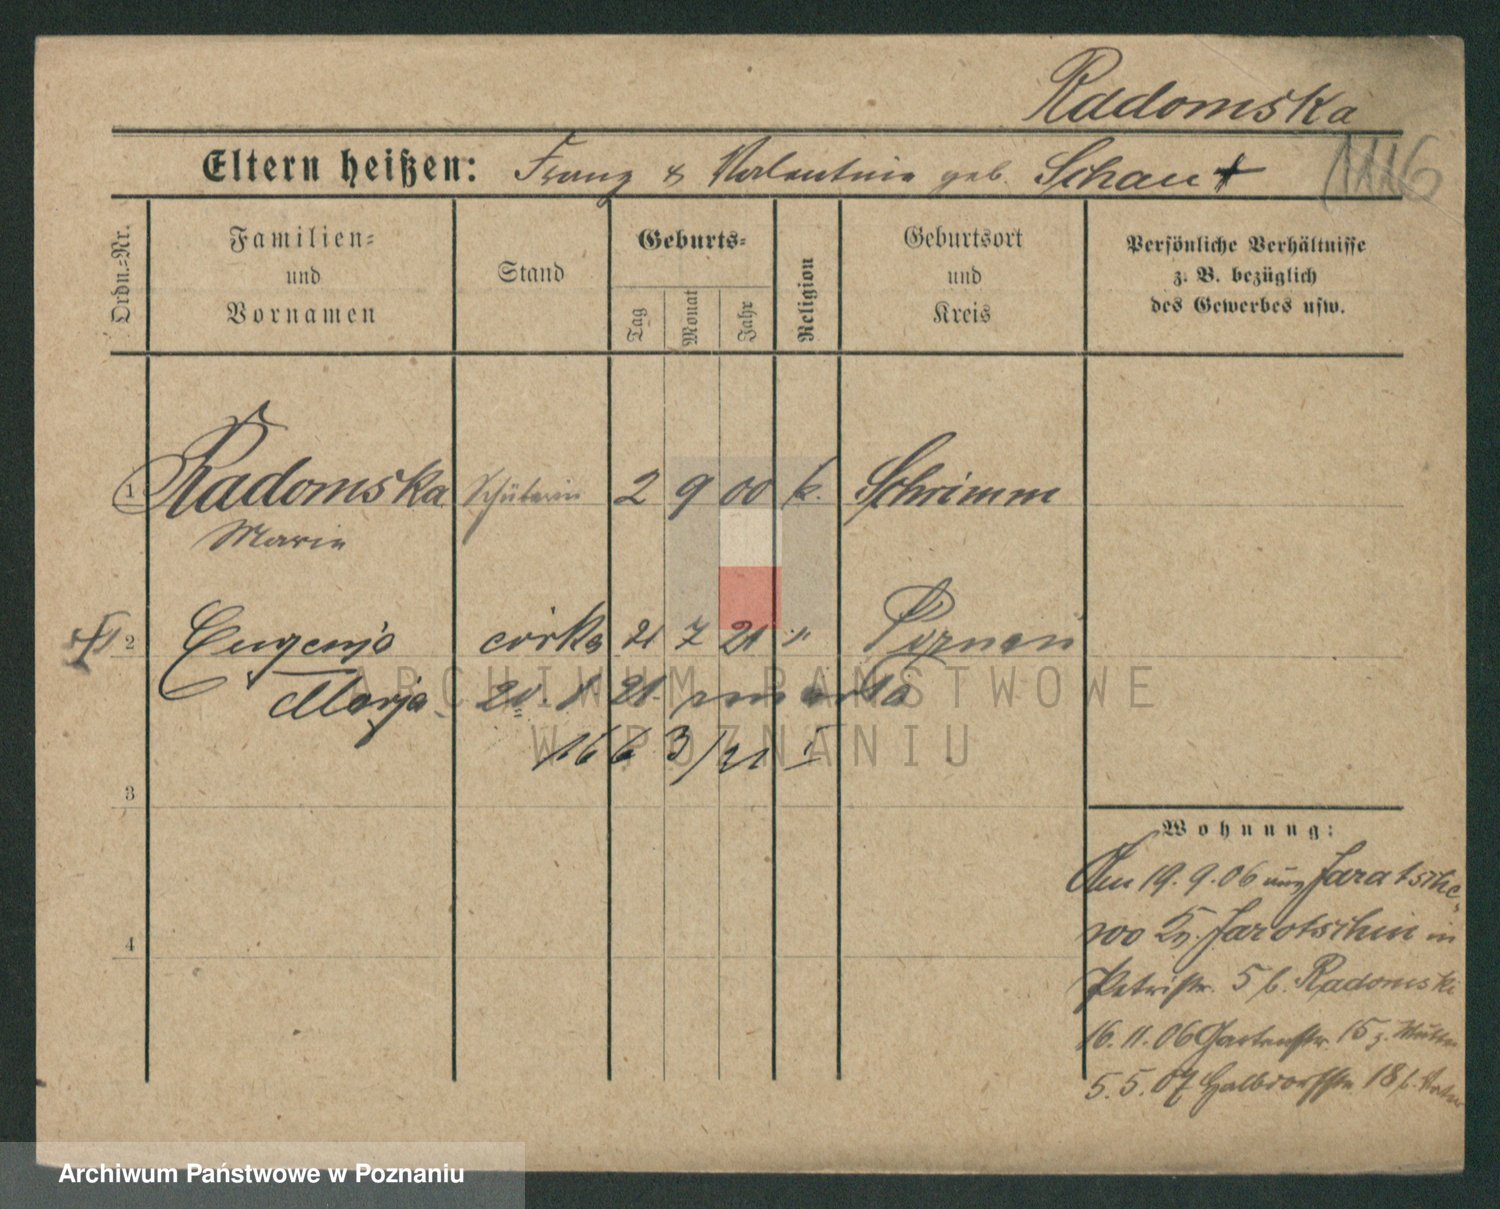 Radomska
Eltern heißen: Franz & Valentine geb. Schau
1116
Ordn.-Nr.
Familien-
und
Vornamen
Stand
Geburts-
Tag
Monat
Jahr
Religion
Geburtsort
und
Kreis
Persönliche Verhältnisse
z. B. bezüglich
des Gewerbes usw.
1 Radomska Schülerin 2 9 00 k. Schrimm
Marie
2 Eugenja córka 21 7 21 " Poznań
Marja 21. zmarła
166 3/21 I
3
4
Wohnung:
Am 19.9.06 aus Jaratsche-
woo Kr. Jarotschin in
Petristr. 5 b. Radomski
16.11.06 Gartenstr. 15 z. Mutter
5.5.07 Halbdorfstr. 18 b. Vater
ARCHIWUM PAŃSTWOWE
W POZNANIU
Archiwum Państwowe w Poznaniu